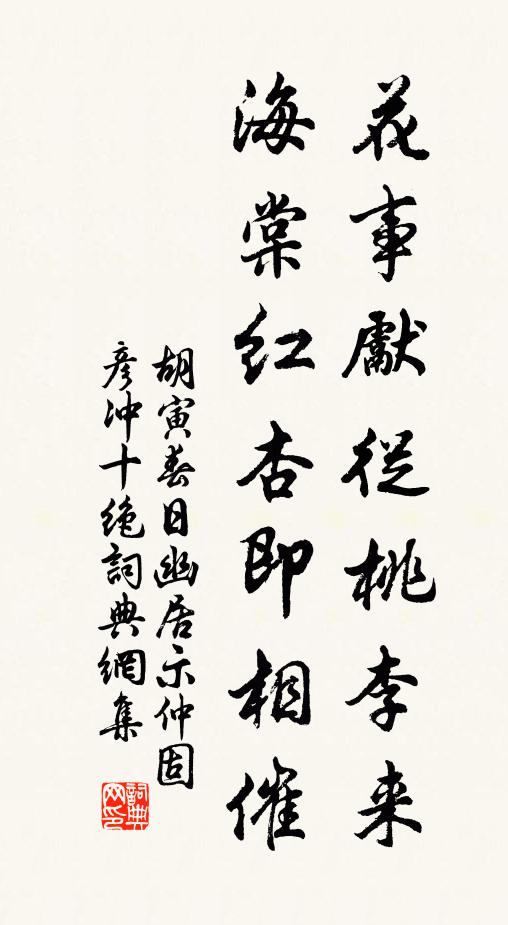 花事獻從桃李来
海棠红杏即相催
胡寅春日幽居示仲固
彦冲十絶詞典網集
詞典网印